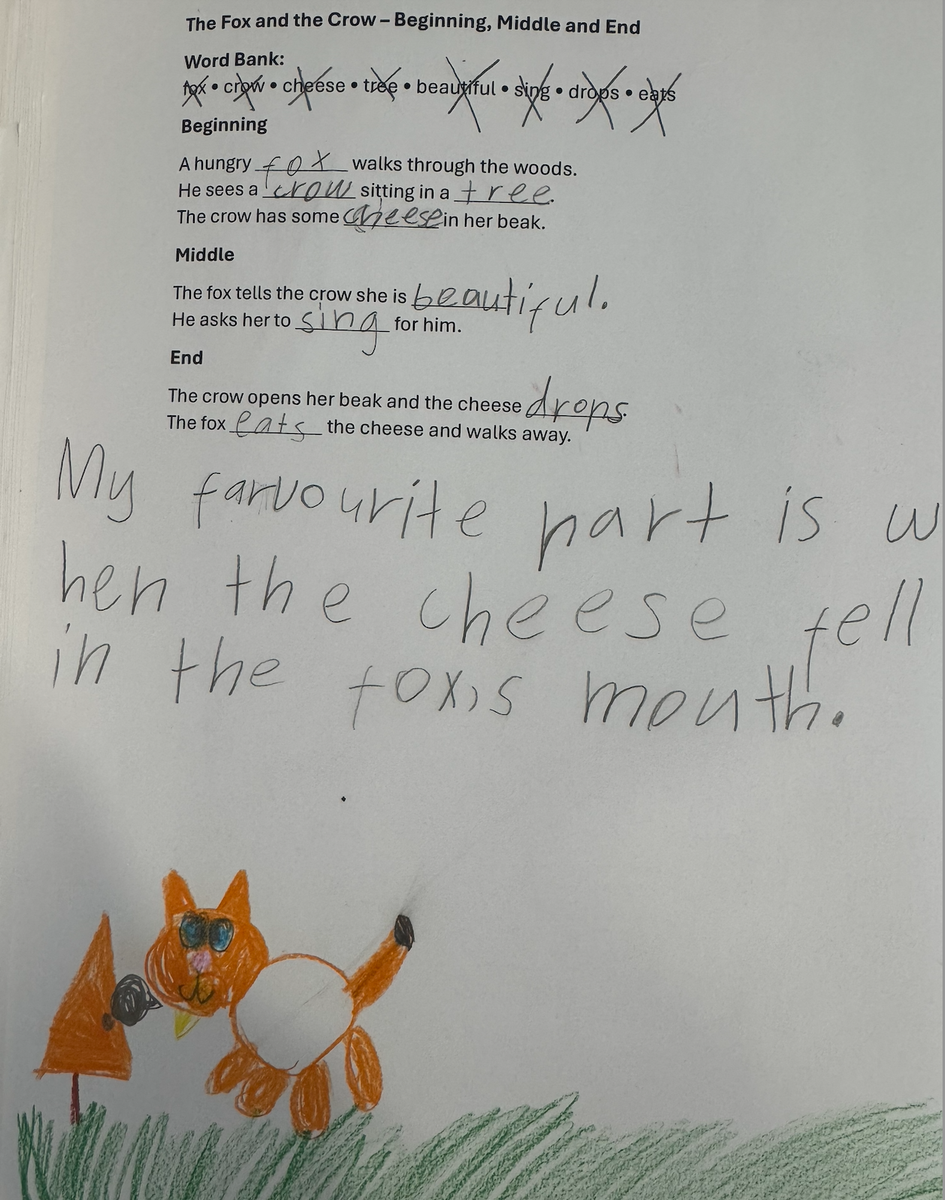 The Fox and the Crow – Beginning, Middle and End
Word Bank:
fox • crow • cheese • tree • beautiful • sing • drops • eats
Beginning
A hungry fox walks through the woods.
He sees a crow sitting in a tree.
The crow has some cheese in her beak.
Middle
The fox tells the crow she is beautiful.
He asks her to sing for him.
End
The crow opens her beak and the cheese drops.
The fox eats the cheese and walks away.
My farvourite part is w
hen the cheese fell
in the fox,s mouth.